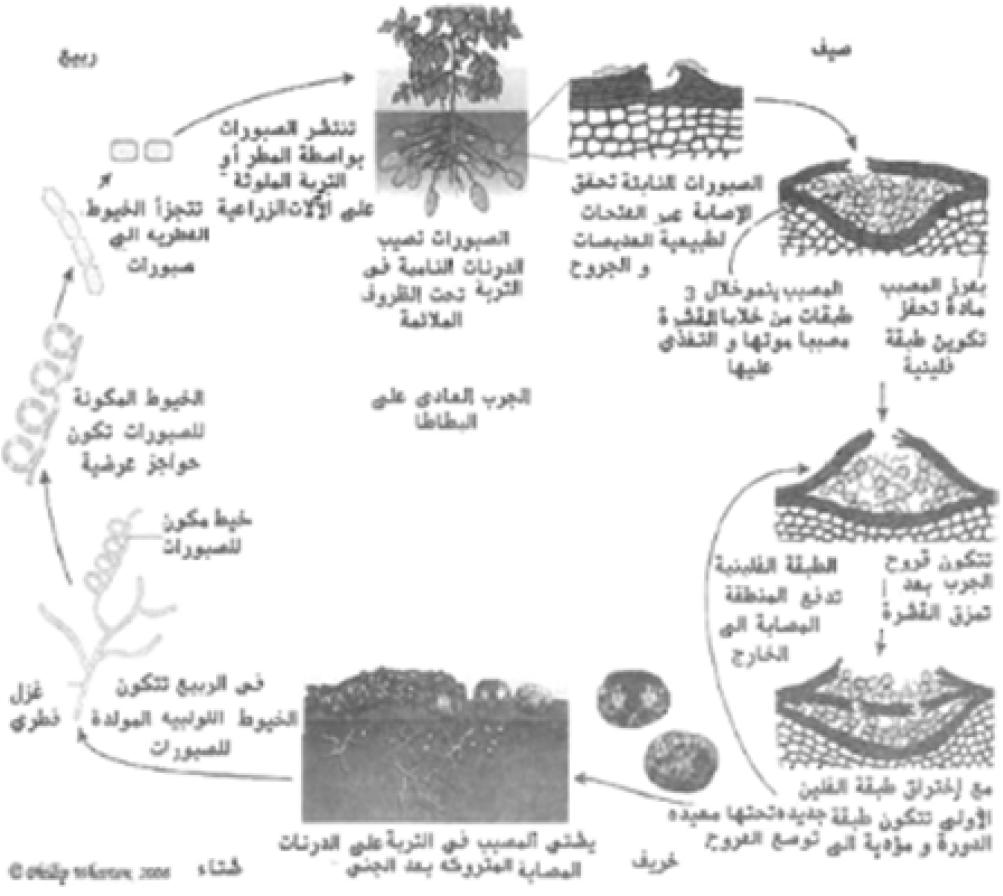 ربيع
صيف
تنتشر الصبورات
بواصطة المطر أو
التربة الملوثة
على الآلات الزراعية
تتجزأ الخيوط
الفطريه الى
صبورات
الصبورات تصيب
الدرنات النامية في
التربة تحت الظروف
الملائمة
الصبورات النابتة تحقق
الإصابة عبر الفتحات
لطبيعية العديصات
و الجروح
المصبب ينمو خلال 3
طبقات من خلايا القشرة
مصببا موتها و التغذي
عليها
يفرز المصبب
مادة تحفز
تكوين طبقة
فلينية
الجرب العادى على
البطاطا
الخيوط المكونة
للصبورات تكون
حواجز عرضية
خيط مكون
للصبورات
الطبقة الفلينية
تدفع المنطقة
المصابة الى
الخارج
تتكون قروح
الجرب بعد
تمزق القشرة
غزل
فطري
في الربيع تتكون
الخيوط اللولبيه المولدة
للصبورات
مع إختراق طبقة الفلين
الأولى تتكون طبقة جديده تحتها معيده
الدورة و مؤدية الى توسع القروح
يشتي المصبب في التربة على الدرنات
المصابة المتروكه بعد الجني
خريف
شتاء
© Phillip Wharton, 2006